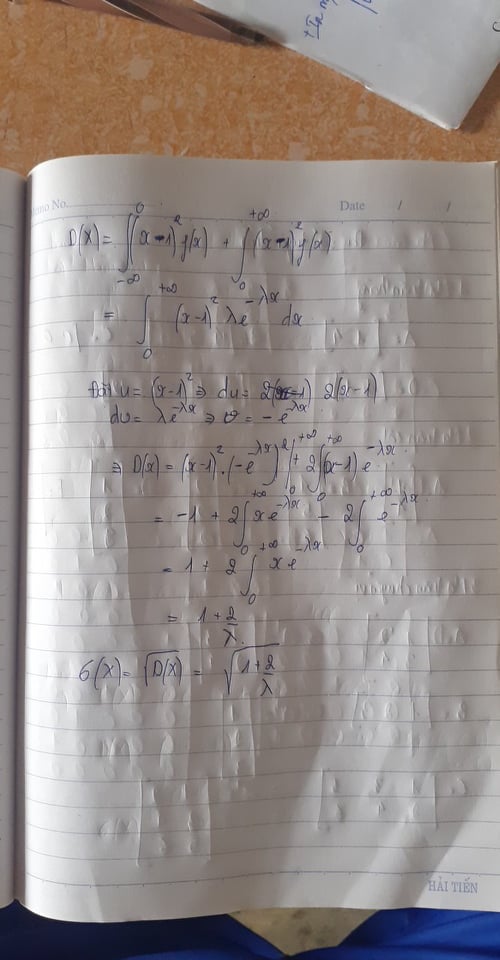 Memo No. Date / /
D(X) = ∫_{-∞}^{0} (x-1)² f(x) + ∫_{0}^{+∞} (x-1)² f(x)
= ∫_{0}^{+∞} (x-1)² λe^{-λx} dx
Đặt u = (x-1)² ⇒ du = 2(x-1) 2(x-1)
dv = λe^{-λx} ⇒ v = -e^{-λx}
⇒ D(x) = (x-1)² . (-e^{-λx}) |_{0}^{+∞} + 2∫_{0}^{+∞} (x-1) e^{-λx}
= -1 + 2∫_{0}^{+∞} xe^{-λx} - 2∫_{0}^{+∞} e^{-λx}
= 1 + 2 ∫_{0}^{+∞} xe^{-λx}
= 1 + 2/λ.
б(X) = √D(X) = √(1 + 2/λ)
HẢI TIẾN